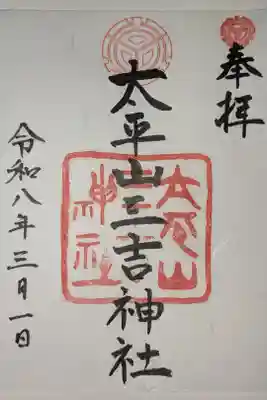 奉拝
太平山三吉神社
太平山
三吉
神社
令和八年三月一日